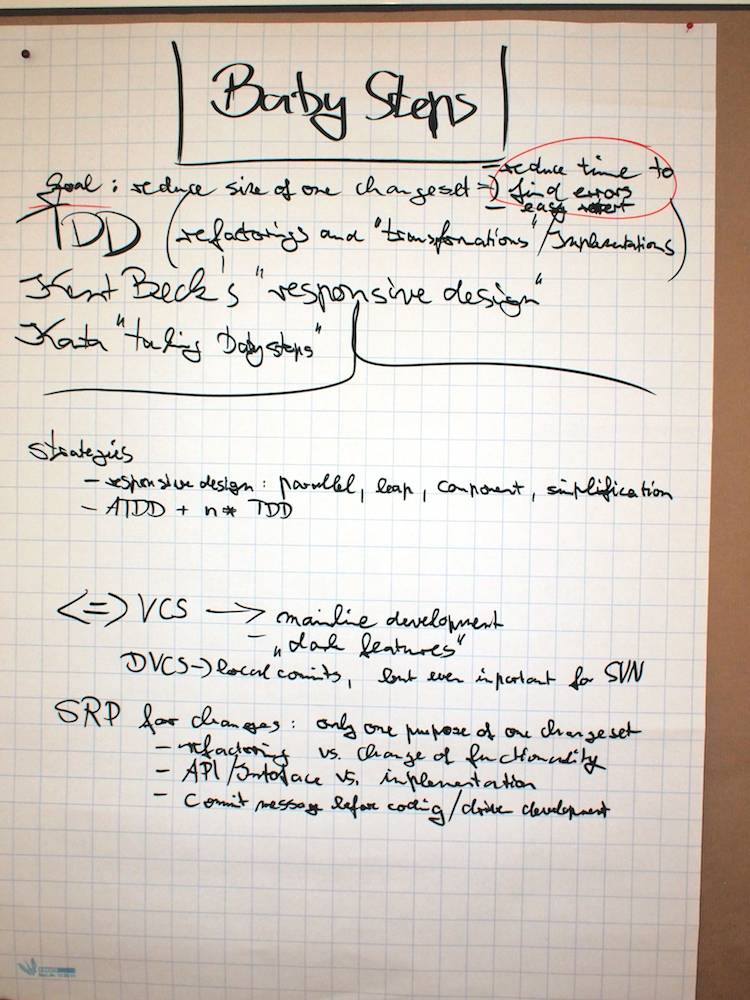 Baby Steps
Goal: reduce size of one changeset =>
- reduce time to
find errors
- easy revert
TDD (refactorings and "transformations"/Implementations)
Kent Beck's "responsive design"
Kata "taking Babysteps"
Strategies
- responsive design: parallel, leap, component, simplification
- ATDD + n* TDD
<=> VCS -> mainline development
- "dark features"
DVCS -> local comits, but even important for SVN
SRP for changes: only one purpose of one changeset
- refactoring vs. change of functionality
- API/Interface vs. implementation
- Commit message before coding/drive development